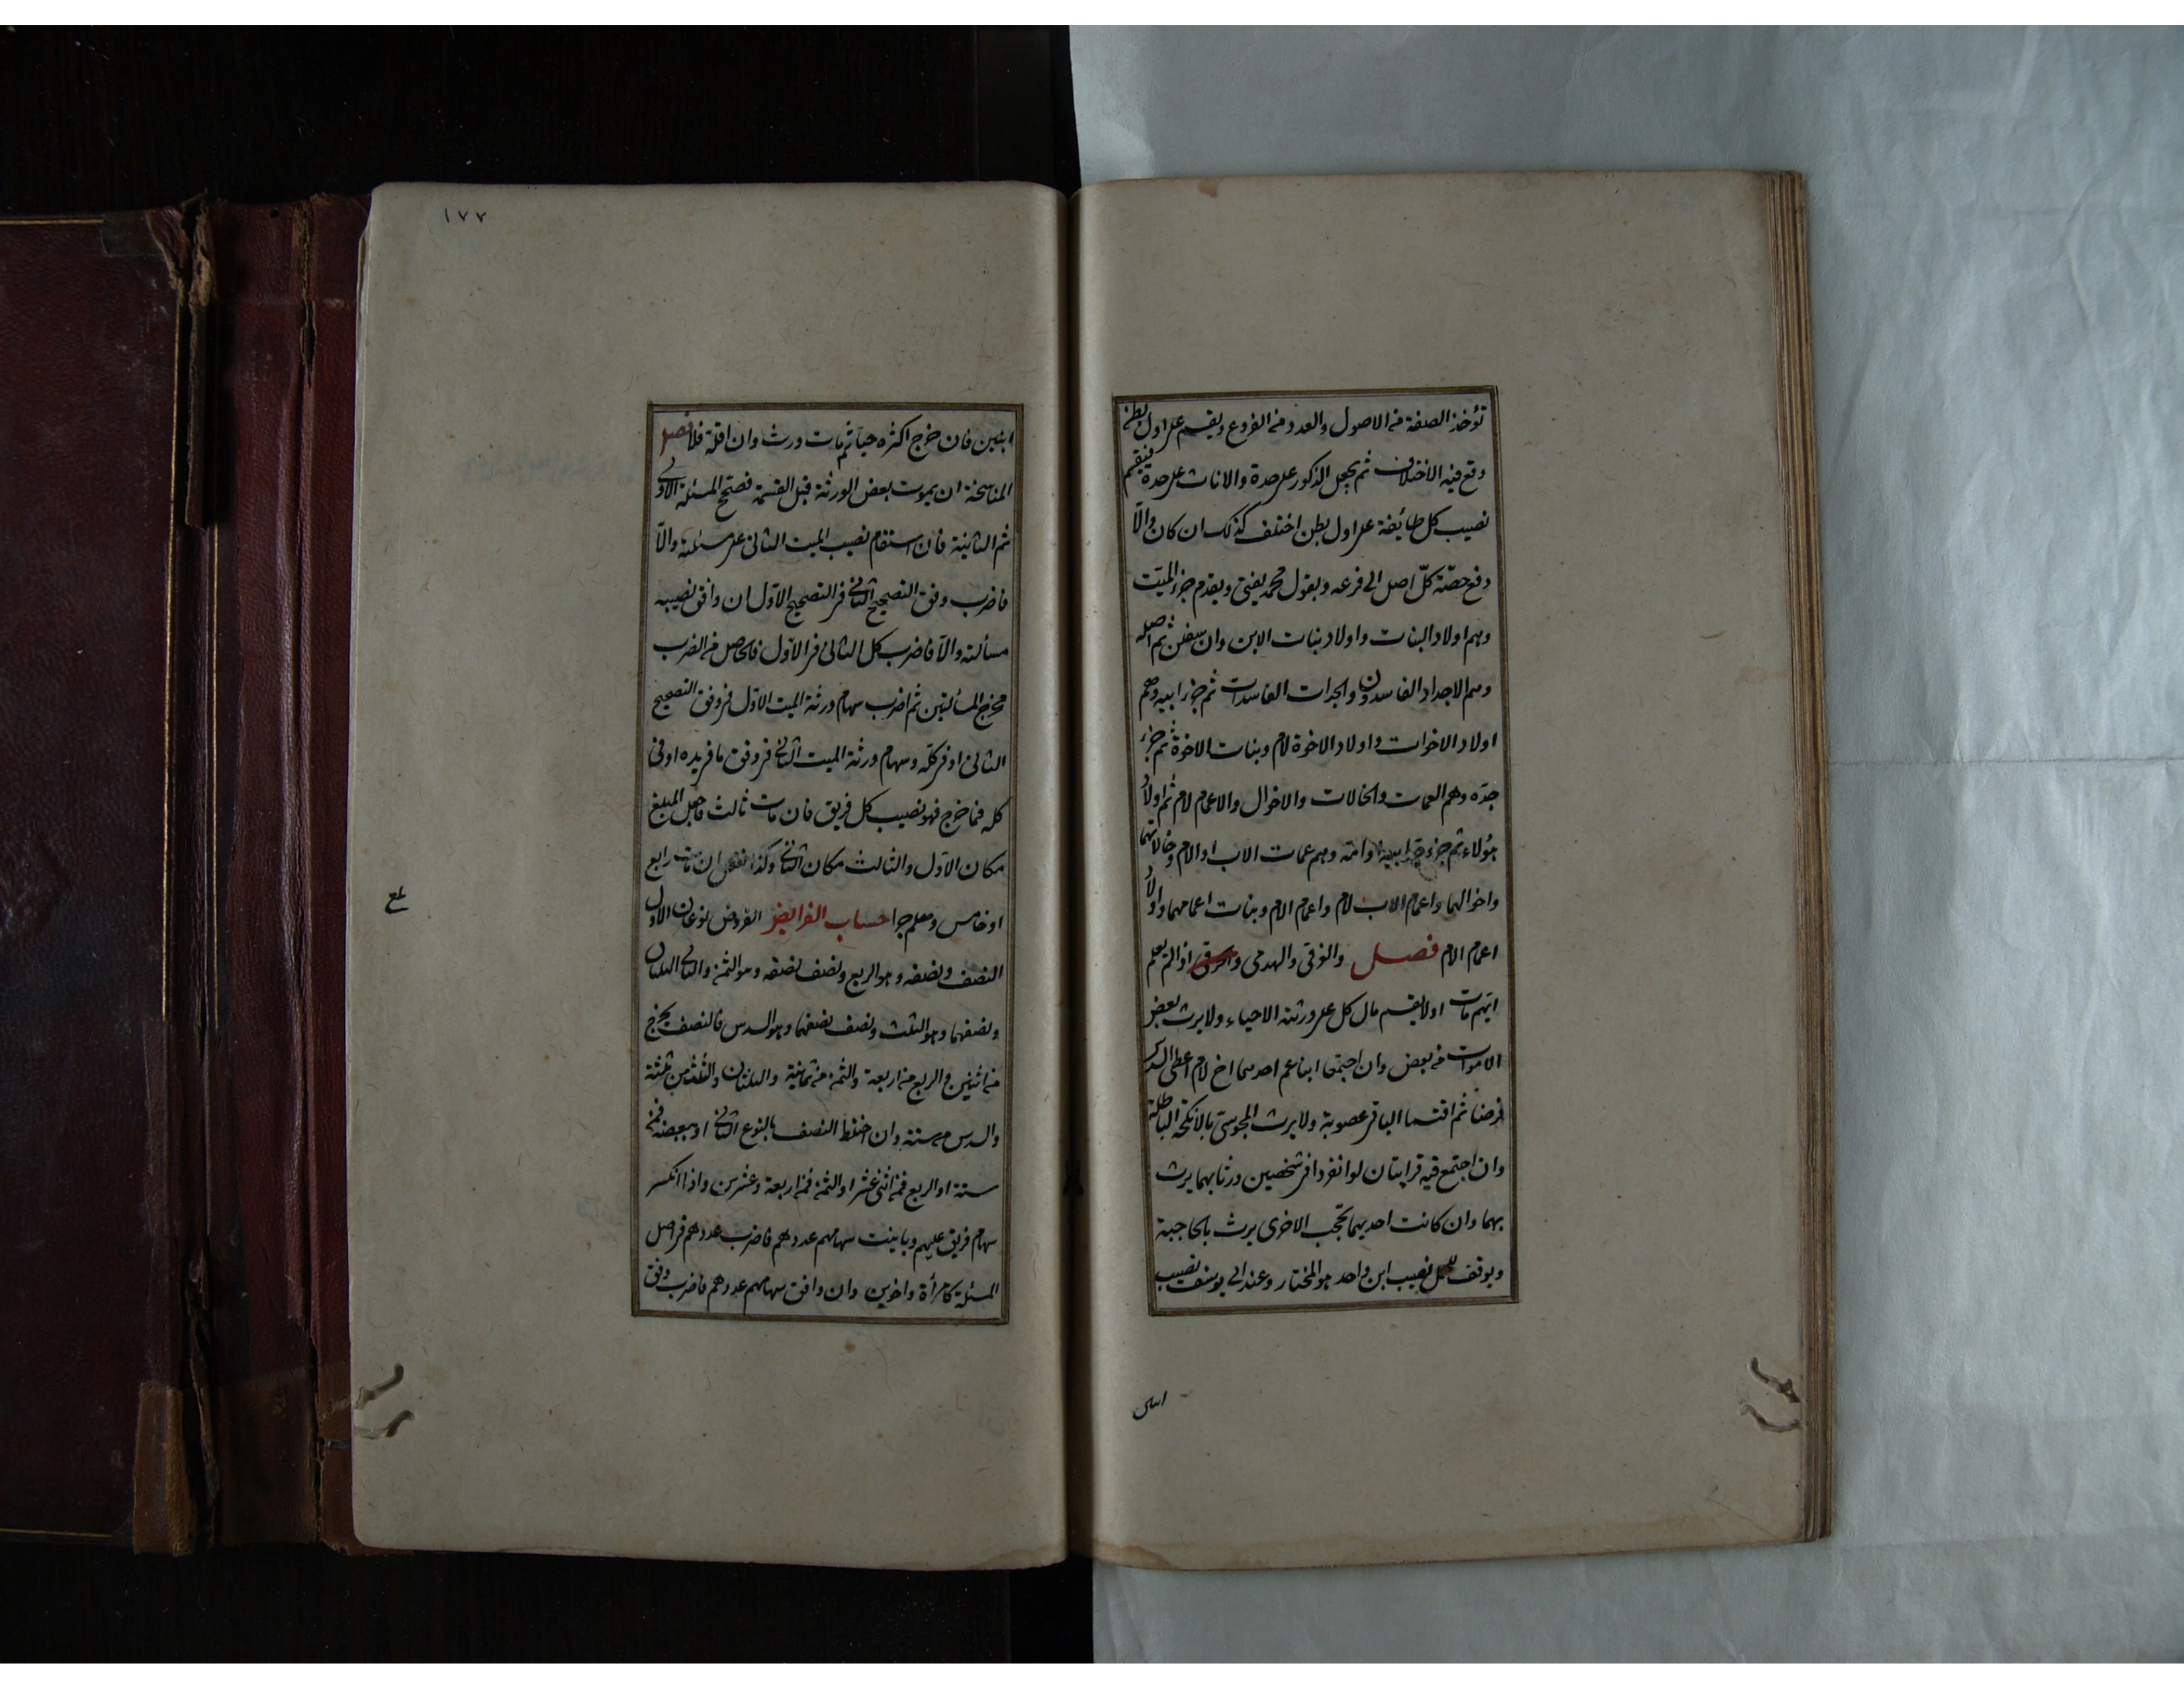 تؤخذ الصفة من الاصول والعدد من الفروع ويقسم على اول بطن
وقع فيه الاختلاف ثم يجعل الذكور على حدة والاناث على حدة فيقسم
نصيب كل طائفة على اول بطن اختلف كذلك ان كان والّا
دفع حصّة كلّ اصل الى فرعه وبقول محمد يفتى ويقدم جزء الميّت
وهم اولاد البنات واولاد بنات الابن وان سفلن ثم اصله
وهم الاجداد الفاسدون والجدات الفاسدات ثم جزء ابيه وهم
اولاد الاخوات واولاد الاخوة لام وبنات الاخوة ثم جزء
جدّه وهم العمات والخالات والاخوال والاعمام لام ثم اولاد
هؤلاء ثم جزء جد ابيه او امه وهم عمات الاب او الام وخالاتهما
واخوالهما واعمام الاب لام واعمام الام وبنات اعمامهما واولاد
اعمام الام فصل والغرقى والهدمى والحرقى اذا لم يعلم
ايّهم مات اولا يقسم مال كل على ورثته الاحياء ولا يرث بعض
الاموات من بعض وان اجتمعا ابنا عم احدهما اخ لام اعطى السدس
فرضا ثم اقتسما الباقى عصوبة ولا يرث المجوسىّ بالانكحة الباطلة
وان اجتمع فيه قرابتان لو انفردا فى شخصين ورثا بهما يرث
بهما وان كانت احديهما تحجب الاخرى يرث بالحاجبة
ويوقف للحمل نصيب ابن واحد هو المختار وعند ابى يوسف نصيب
١٧٧
ابنين فان خرج اكثره حيا ثم مات ورث وان اقله فلا فصل
المناسخة ان يموت بعض الورثة قبل القسمة فصحح المسئلة الاولى
ثم الثانية فان استقام نصيب الميت الثانى على مسئلته والّا
فاضرب وفق التصحيح الثانى فى التصحيح الاول ان وافق نصيبه
مسألته والّا فاضرب كل الثانى فى الاول فالحاصل من الضرب
مخرج المسألتين ثم اضرب سهام ورثة الميت الاول فى وفق التصحيح
الثانى او فى كلّه وسهام ورثة الميت الثانى فى وفق ما فى يده او فى
كله فما خرج فهو نصيب كل فريق فان مات ثالث فاجعل المبلغ
مكان الاول والثالث مكان الثانى وكذا تفعل ان مات رابع
او خامس وهلم جرا حساب الفرايض الفروض نوعان الاول
النصف ونصفه وهو الربع ونصف نصفه وهو الثمن والثانى الثلثان
ونصفهما وهو الثلث ونصف نصفهما وهو السدس فالنصف يخرج
من اثنين والربع من اربعة والثمن من ثمانية والثلثان والثلث من ثلثة
والسدس من ستة وان اختلط النصف بالنوع الثانى او ببعضه فمن
ستة او الربع فمن اثنى عشر او الثمن فمن اربعة وعشرين واذا انكسر
سهام فريق عليهم وباينت سهامهم عددهم فاضرب عددهم فى اصل
المسئلة كامرأة واخوين وان وافق سهامهم عددهم فاضرب وفق